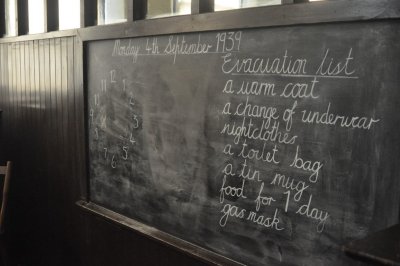 Monday 4th September 1939
Evacuation list
a warm coat
a change of underwear
nightclothes
a toilet bag
a tin mug
food for 1 day
gas mask
12
11 1
2
9 3
8 4
7 5
6